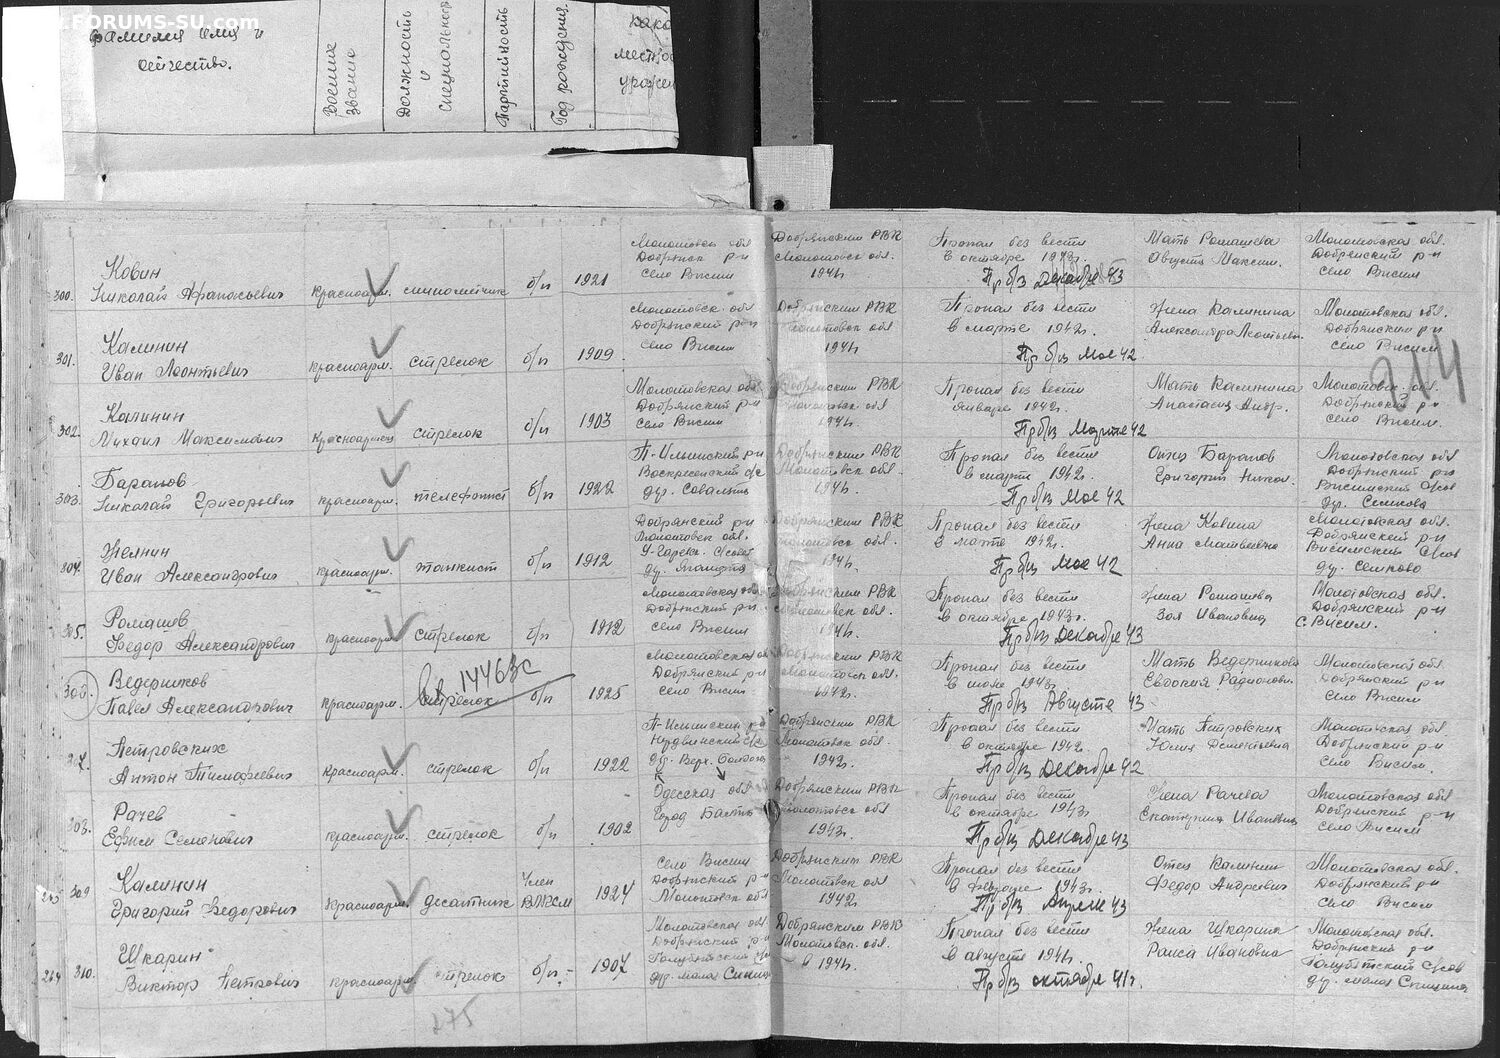 FORUMS-SU.com
фамилия имя и
отчество.
Военное
звание
Должность
и
специальность
Партийность
Год рождения.
местнос
урожен
Ковин
Молотовск обл
Добрянск р-н
село Висим
Добрянским РВК
Молотовск обл.
1941г.
Пропал без вести
в октябре 1943г.
Пр б/в Декабре 43
Мать Ромашева
Августа Максим.
Молотовская обл.
Добрянский р-н
село Висим
300. Николай Афанасьевич красноарм. минометчик б/п 1921
Калинин
Молотовск. обл
Добрянский р-н
село Висим
Добрянским РВК
Молотовск обл
1941г
Пропал без вести
в марте 1942г.
Пр б/в Мае 42
Жена Калинина
Александра Леонтьевн.
Молотовская обл.
Добрянский р-н
село Висим
301. Иван Леонтьевич красноарм. стрелок б/п 1909
214
Калинин
Молотовская обл
Добрянский р-н
село Висим
Добрянским РВК
Молотовск обл
1941г.
Пропал без вести
январе 1942г.
Пр б/в Марте 42
Мать Калинина
Анастасия Андр.
Молотовск. обл.
Добрянский р-н
село Висим.
302. Михаил Максимович красноармеец стрелок б/п 1903
Баранов
П-Ильинский р-н
Воскресенский с/с
дер.
Добрянским РВК
Молотовск обл.
1941г.
Пропал без вести
в марте 1942г.
Пр б/в Мае 42
Отец Баранов
Григорий Никол.
Молотовская обл
Добрянский р-н
Висимский с/сов
др. Семково
303. Николай Григорьевич красноарм. телефонист б/п 1922
Желнин
Добрянский р-н
Молотовск обл.
У-Гаревс. с/совет
Добрянским РВК
Молотовск обл.
1941г.
Пропал без вести
в марте 1942г.
Пр б/в Мае 42
Жена Ковина
Анна Матвеевна
Молотовская обл.
Добрянский р-н
Висимский с/сов
др. Семково
304. Иван Александрович красноарм. танкист б/п 1912
Ромашев
Молотовская обл
Добрянский р-н
село Висим
Добрянским РВК
Молотовск обл.
1941г.
Пропал без вести
в октябре 1943г.
Пр б/в Декабре 43
Жена Ромашева
Зоя Ивановна
Молотовская обл.
Добрянский р-н
с. Висим.
305. Федор Александрович красноарм. стрелок б/п 1912
Ведерников
14463с
Молотовская обл
Добрянский р-н
село Висим
Добрянским РВК
Молотовск обл.
1942г.
Пропал без вести
в июне 1943г.
Пр б/в Августе 43
Мать Ведерникова
Евдокия Радионовн.
Молотовская обл
Добрянский р-н
село Висим
306. Павел Александрович красноарм. стрелок б/п 1925
Петровских
П-Ильинский р-н
Нердвинский с/с
др. Верх.
Добрянским РВК
Молотовск обл
1942г.
Пропал без вести
в октябре 1942г.
Пр б/в Декабре 42
Мать Петровских
Юлия Дементьевна
Молотовская обл
Добрянский р-н
село Висим.
307. Антон Тимофеевич красноарм. стрелок б/п 1922
Рачев
Одесская обл
город Балта
Добрянским РВК
Молотовск обл
1943г.
Пропал без вести
в октябре 1943г
Пр б/в Декабре 43
Жена Рачева
Екатерина Ивановна
Молотовская обл.
Добрянский р-н
село Висим
308. Ефим Семенович красноарм. стрелок б/п 1902
Калинин
село Висим
Добрянский р-н
Молотовск обл
Добрянским РВК
Молотовск обл
1942г.
Пропал без вести
в феврале 1943г.
Пр б/в Апреле 43
Отец Калинин
Федор Андреевич
Молотовская обл.
Добрянский р-н
село Висим
309 Григорий Федорович красноарм. десантник Член ВЛКСМ 1924
Шкарин
Молотовская обл.
Добрянский р-н
Голубятский с/с
др. малая
Добрянским РВК
Молотовск. обл.
в 1941г.
Пропал без вести
в августе 1941г.
Пр б/в октябре 41г.
Жена Шкарина
Раиса Ивановна
Молотовская обл.
Добрянский р-н
Голубятский с/сов
др. малая
264 310. Виктор Петрович красноарм. стрелок б/п - 1907
275